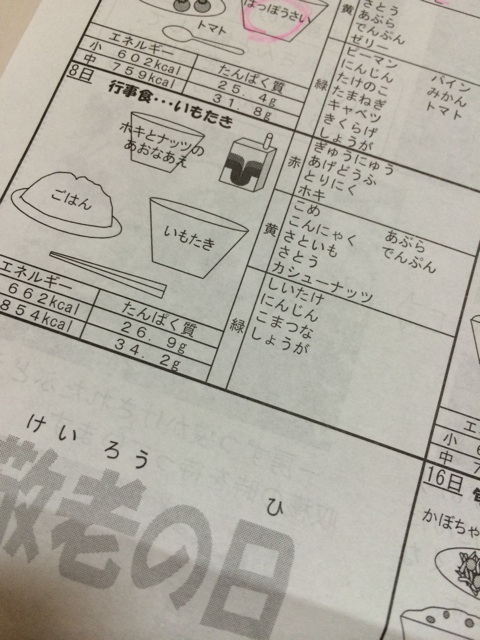 はっぽうさい
トマト
エネルギー
たんぱく質
小 602kcal
25.4g
中 759kcal
31.8g
黄
さとう
あぶら
でんぷん
ゼリー
緑
ピーマン
にんじん
たけのこ
たまねぎ
キャベツ
きくらげ
しょうが
パイン
みかん
トマト
8日
行事食・・・いもたき
ホキとナッツの
あおなあえ
ごはん
いもたき
赤
ぎゅうにゅう
あげどうふ
とりにく
ホキ
黄
こめ
こんにゃく
さといも
さとう
カシューナッツ
あぶら
でんぷん
緑
しいたけ
にんじん
こまつな
しょうが
エネルギー
たんぱく質
662kcal
26.9g
854kcal
34.2g
けい ろう
ひ
敬老の日
エ
小 6
中 7
16日
かぼちゃ